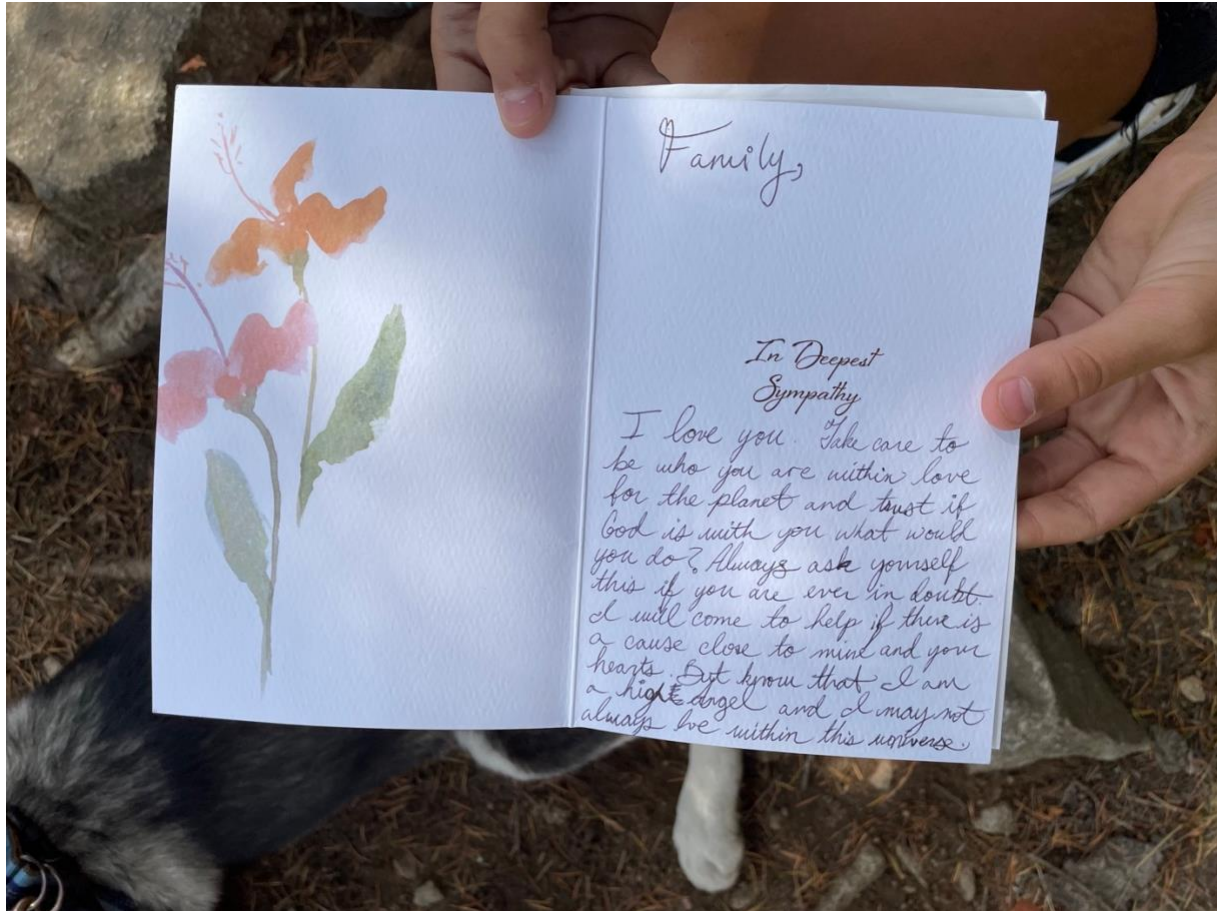 Family,
In Deepest
Sympathy
I love you. Take care to
be who you are within love
for the planet and trust if
God is with you what would
you do? Always ask yourself
this if you are ever in doubt.
I will come to help if there is
a cause close to mine and your
hearts. But know that I am
a angel and I may not
always be within this universe.